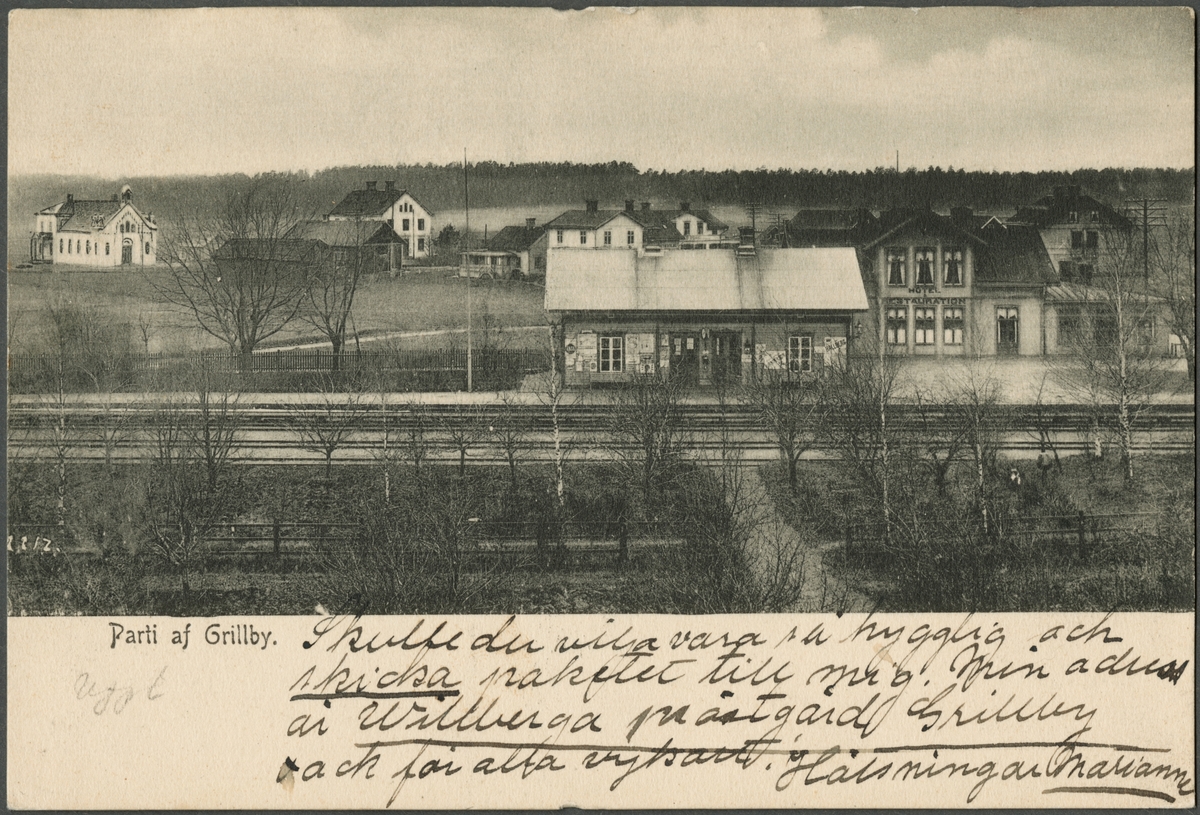 HOTEL
RESTAURATION
2212.
Parti af Grillby.
Uppl
Skulle du vilja vara så hygglig och
skicka paketet till mig. Min adress
är Willberga prästgård, Grillby
Tack för alla vykort. Hälsningar Marianne